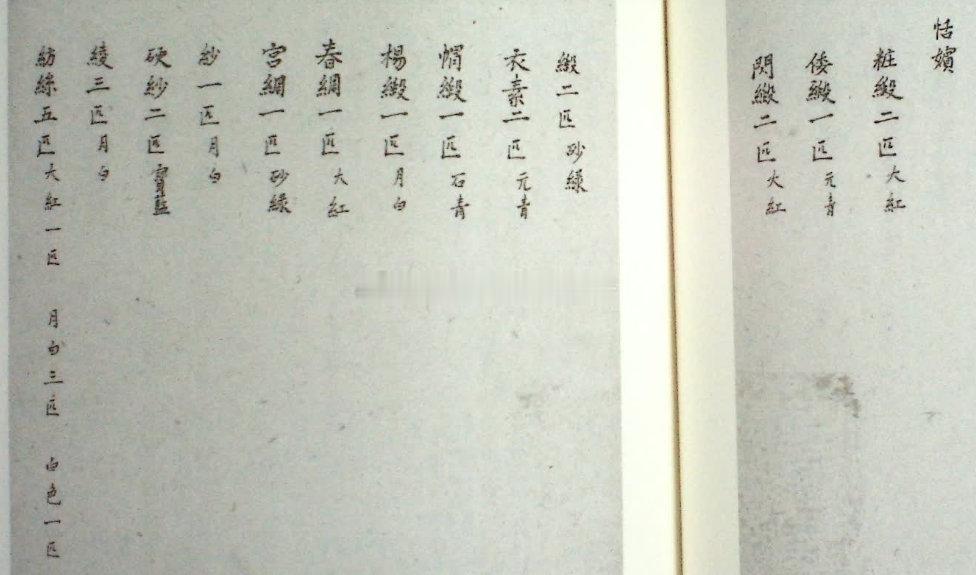 恬嬪
粧緞二匹大紅
倭緞一匹元青
閃緞二匹大紅
緞二匹砂綠
衣素二匹元青
帽緞一匹石青
楊緞一匹月白
春綢一匹大紅
宮綢一匹砂綠
紗一匹月白
硬紗二匹寶藍
綾三匹月白
紡絲五匹大紅一匹 月白三匹 白色一匹